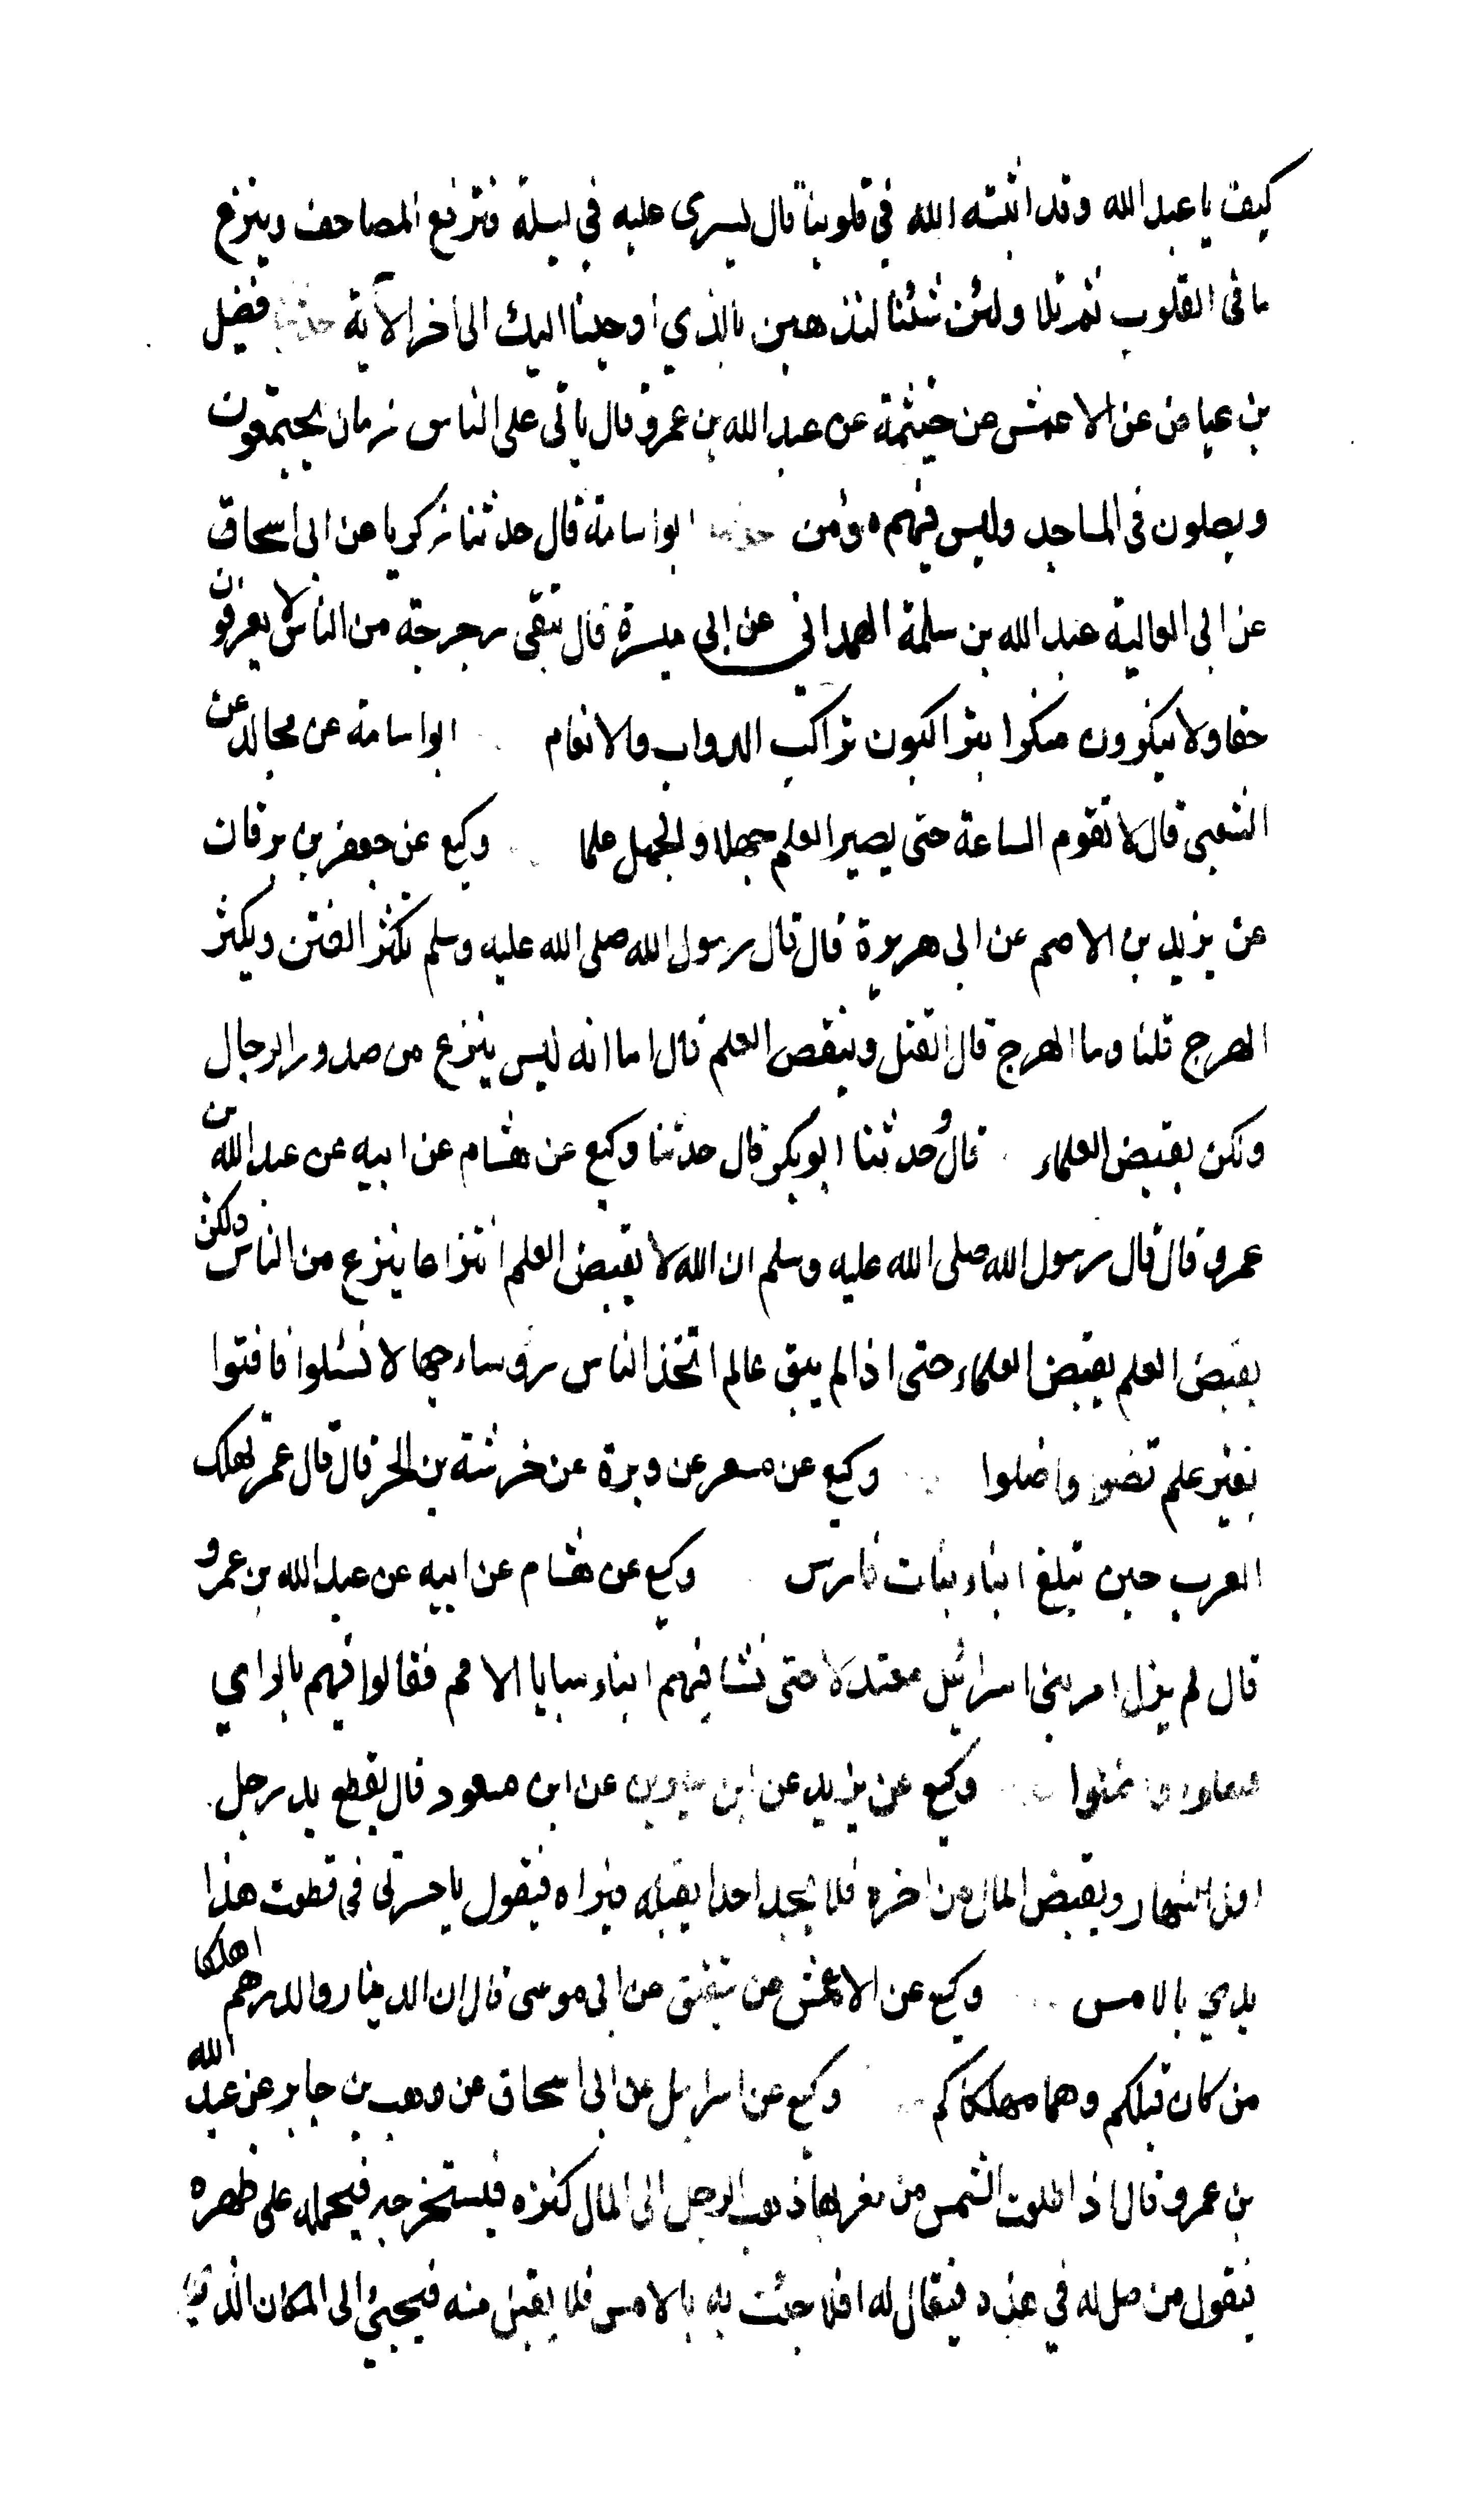 كيف يا عبد الله وقد اثبته الله في قلوبنا قال ليسرى عليه في ليلة فترفع المصاحف وينزع
ما فى القلوب ثم تلا ولئن شئنا لنذهبن بالذي اوحينا اليك الى اخر الآية حدثنا فضيل
بن عياض عن الاعمش عن خيثمة عن عبد الله بن عمرو قال ياتى على الناس زمان يجتمعون
ويصلون فى المساجد وليس فيهم مؤمن حدثنا ابو اسامة قال حدثنا زكريا عن ابى اسحاق
عن ابى العالية عبد الله بن سلمة الهمدانى عن ابى ميسرة قال تبقى رجرجة من الناس لا يعرفون
حقا ولا ينكرون منكرا يتراكبون تراكب الدواب والانعام ابو اسامة عن مجالد عن
الشعبى قال لا تقوم الساعة حتى يصير العلم جهلا والجهل علما وكيع عن جعفر بن برقان
عن يزيد بن الاصم عن ابى هريرة قال قال رسول الله صلى الله عليه وسلم تكثر الفتن ويكثر
الهرج قلنا وما الهرج قال القتل وينقص العلم قال اما انه ليس ينزع من صدور الرجال
ولكن بقبض العلماء قال وحدثنا ابو بكر قال حدثنا وكيع عن هشام عن ابيه عن عبد الله بن
عمرو قال قال رسول الله صلى الله عليه وسلم ان الله لا يقبض العلم انتزاعا ينزع من الناس ولكن
يقبض العلم بقبض العلماء حتى اذا لم يبق عالم اتخذ الناس رؤساء جهالا فسئلوا فافتوا
بغير علم فضلوا واضلوا وكيع عن مسعر عن وبرة عن خرشة بن الحر قال قال عمر تهلك
العرب حين تبلغ ابناء بنات فارس وكيع عن هشام عن ابيه عن عبد الله بن عمرو
قال لم يزل امر بنى اسرائيل معتدلا حتى نشا فيهم ابناء سبايا الامم فقالوا فيهم بالراي
وكيع عن يزيد عن ابن عن ابن مسعود قال يقطع يد رجل
اول النهار ويقبض المال من اخره فلا يجد احدا يقبله فيراه فيقول يا حسرتى فى قطعت هذا
يدي بالامس وكيع عن الاعمش عن شقيق عن ابى موسى قال ان الدينار والدرهم اهلكا
من كان قبلكم وهما مهلكاكم وكيع عن اسرايل عن ابى اسحاق عن وهب بن جابر عن عبد الله
بن عمرو قال اذا طلعت الشمس من مغربها ذهب الرجل الى المال كنزه فيستخرجه فيحمله على ظهره
فيقول من صل له في هذه فيقال له افلا جئت به بالامس فلا يقبل منه فيجيئ الى المكان الذي